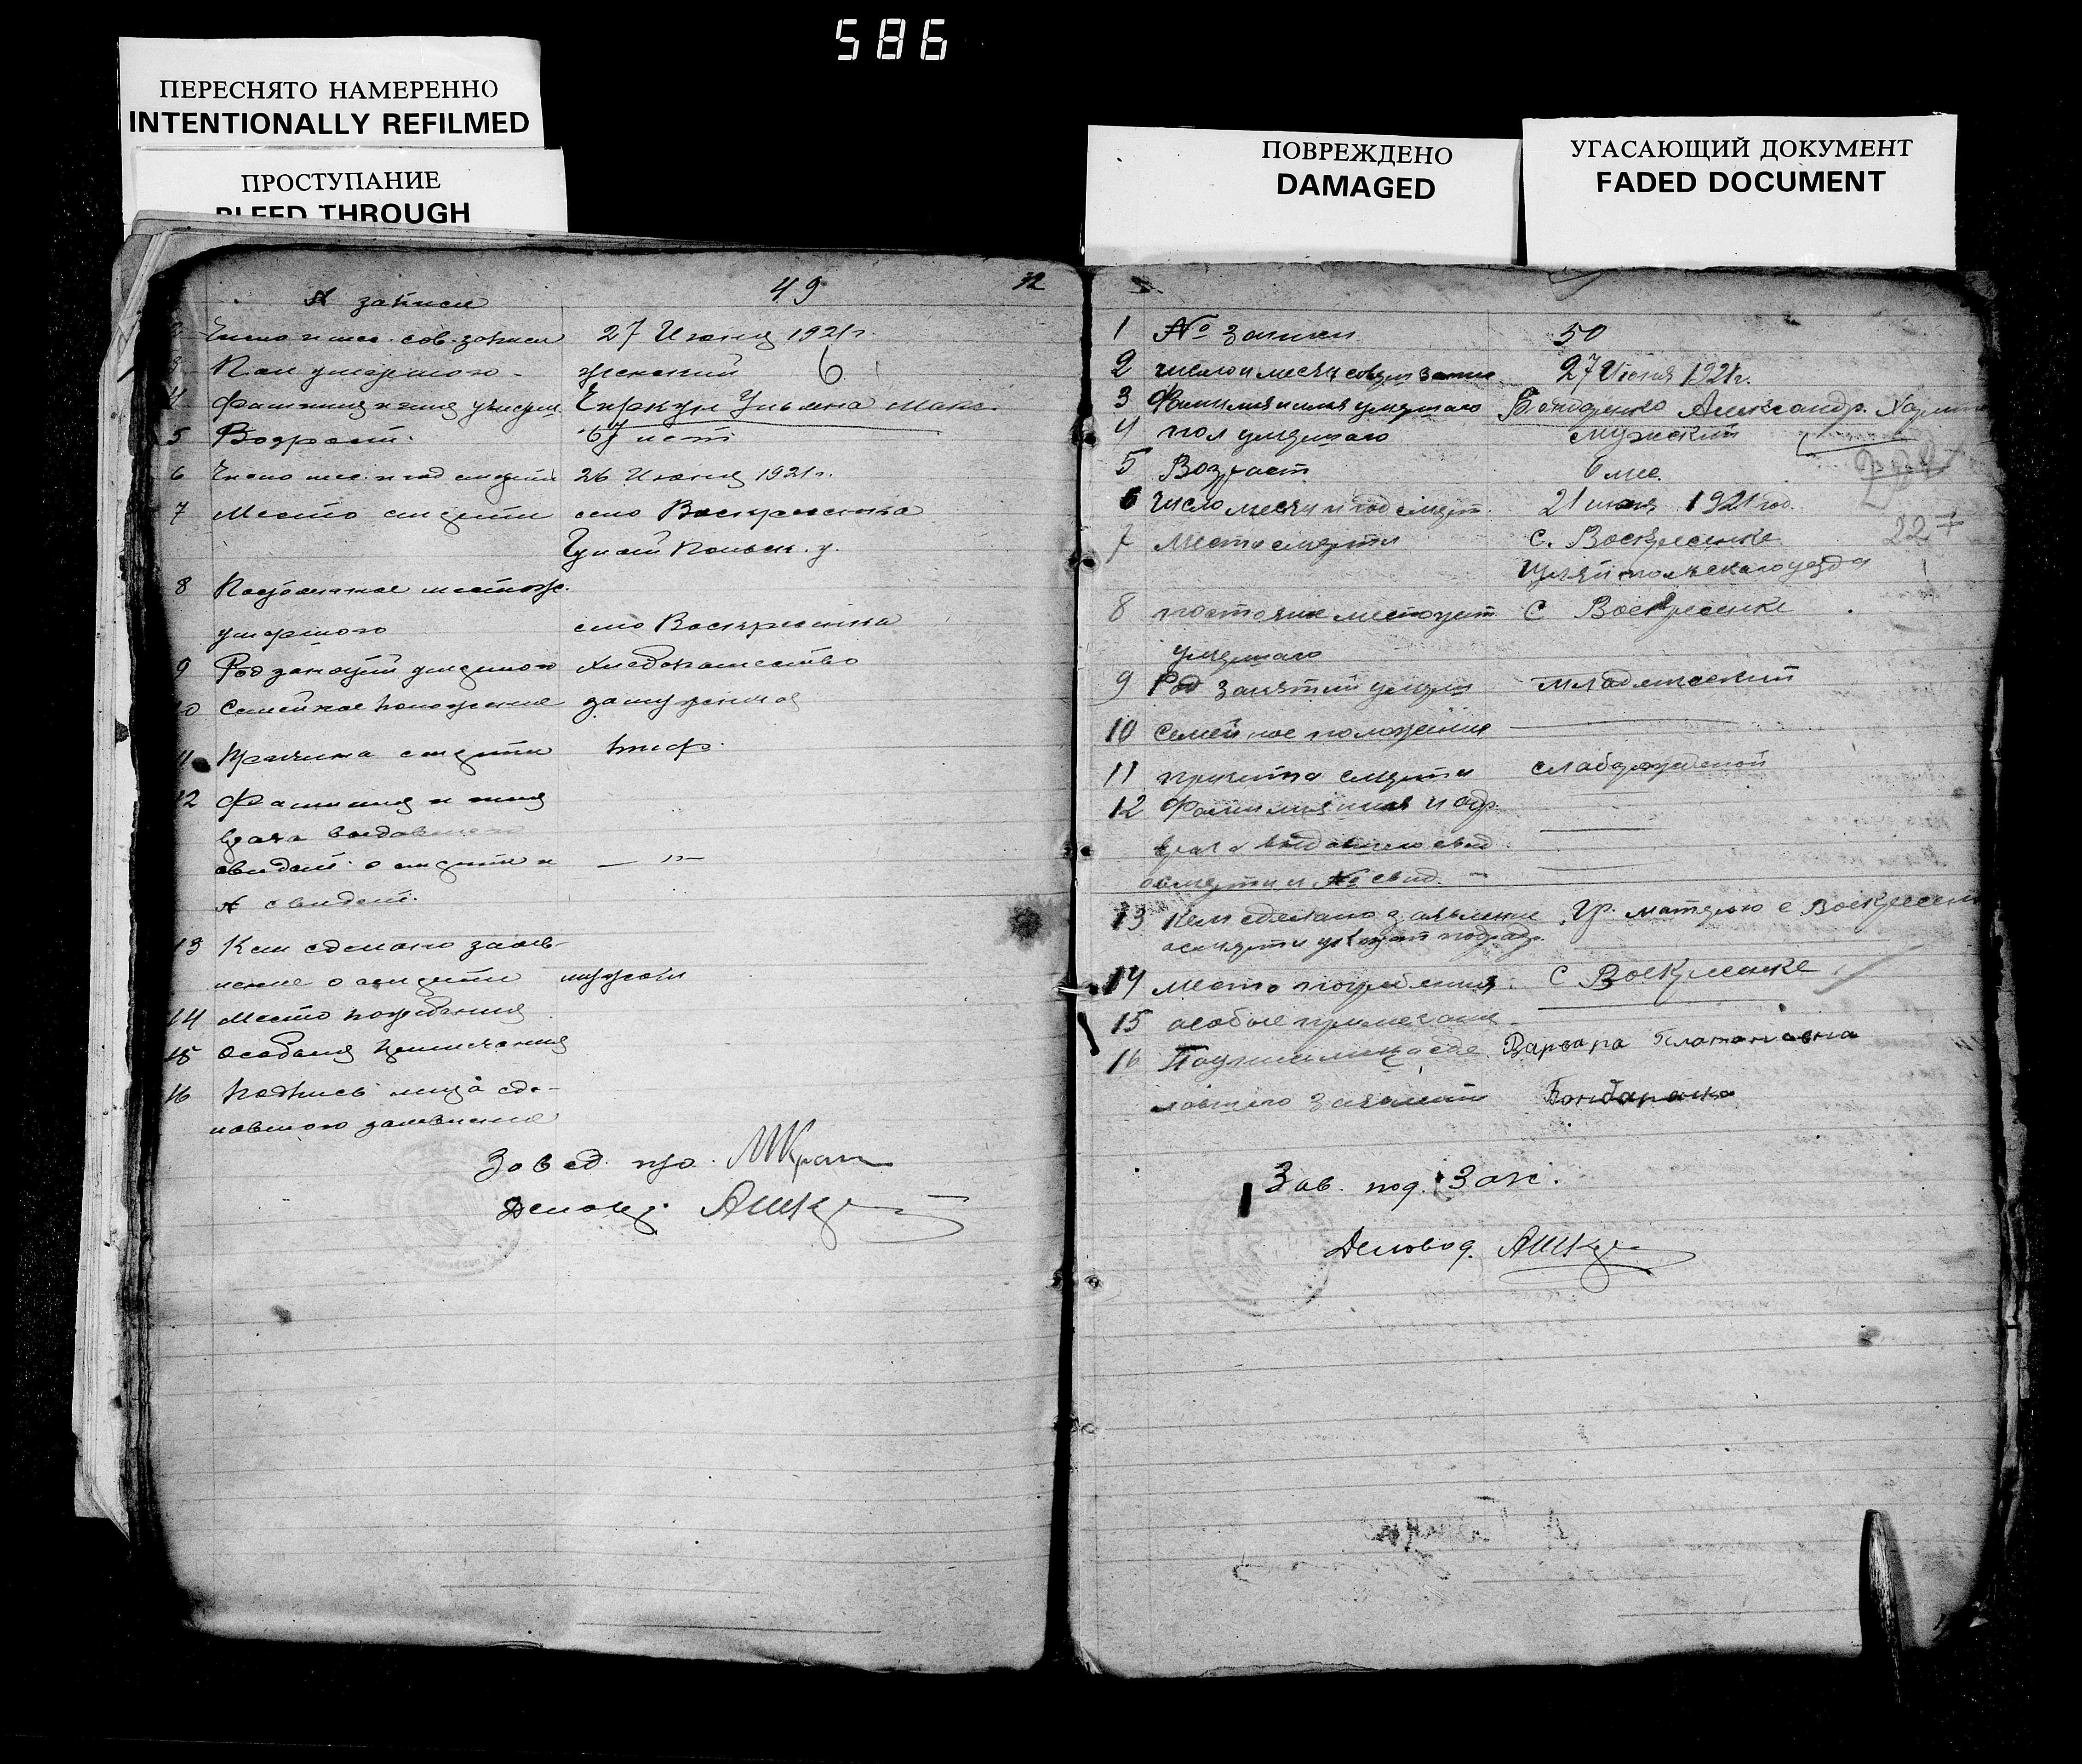 586
ПЕРЕСНЯТО НАМЕРЕННО
INTENTIONALLY REFILMED
ПРОСТУПАНИЕ
BLEED THROUGH
ПОВРЕЖДЕНО
DAMAGED
УГАСАЮЩИЙ ДОКУМЕНТ
FADED DOCUMENT
№ записи 49
Число и мес. сов. записи 27 Июня 1921 г.
3 Пол умершого женский 6
4 Фамилия и имя умерш. Ульяна Макс.
5 Возраст. 67 лет
6 Число мес. и год смерти 26 Июня 1921 г.
7 Место смерти село Воскресенка
Гуляй Польск. у.
8 Постоянное местож.
умершого село Воскресенка
9 Род занятий умершого хлебопашество
10 Семейное положение замужняя
11 Причина смерти тиф
12 Фамилия и имя
врача выдавшего
свидет. о смерти и — " —
№ свидет.
13 Кем сделано заяв-
ление о смерти мужем
14 Место погребения
15 Особыя примечания
16 Подпись лица сде-
лавшого заявление
Завед. про.
Деловод.
1 № записи 50
2 число и месяц соверш записи 27 Июня 1921 г.
3 Фамилия и имя умершаго Бондаренко Александр.
4 пол умершаго мужский
5 Возраст 6 мес.
6 число месяц и год смерт. 21 июня 1921 год.
227
7 Место смерти С. Воскресенка
Гуляйпольскаго уезда
8 постоян местожит С Воскресенке
умершаго
9 Род занятий умерш младенческий
10 семейное положения
11 причина смерти
12 Фамилия имя и адр.
врача выдавшего свид
о смерти и № свид. -
13 Кем сделано заявление Гр. матерью с Воскресен
о смерти
14 место погребения. С Воскресенке
15 особые примечания
16 Подпись лица сде Варвара Платоновна
лавшего заявлен Бондаренко
Зав. под. Зап.
Деловод.